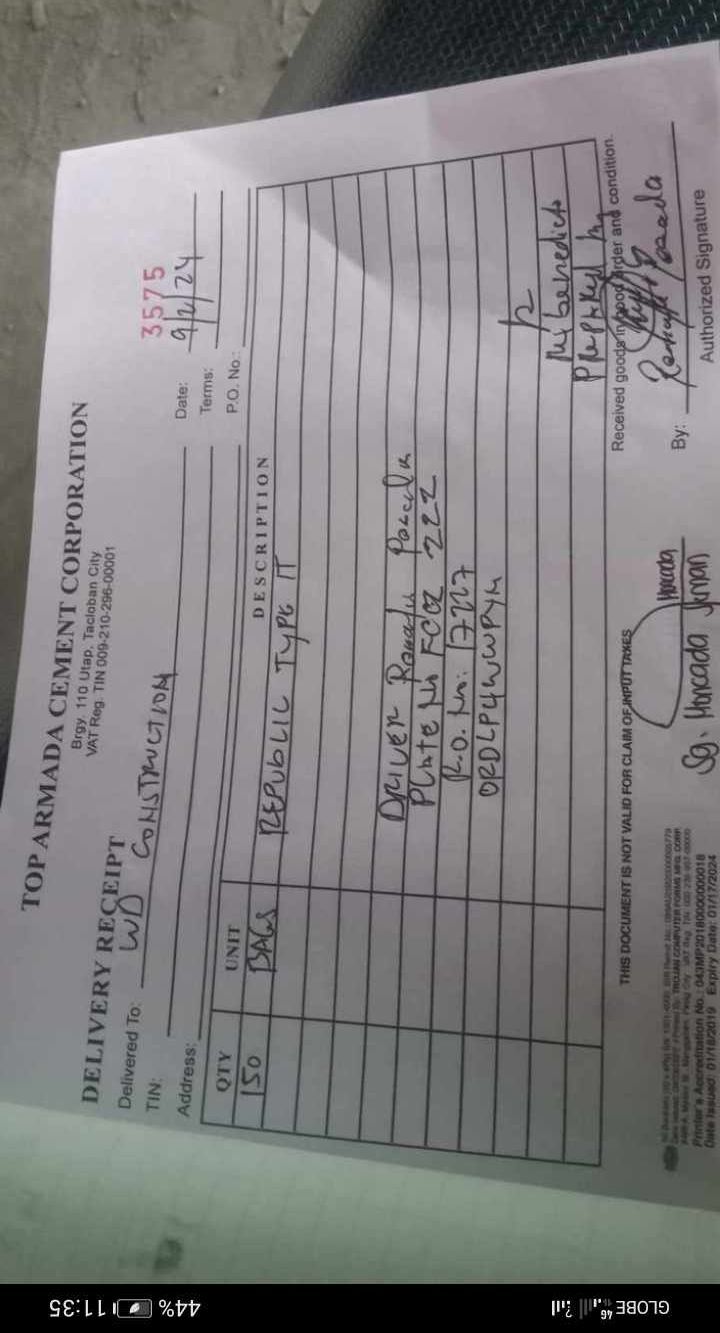 TOP ARMADA CEMENT CORPORATION
Brgy. 110 Utap, Tacloban City
VAT Reg. TIN 009-210-296-00001
DELIVERY RECEIPT
3575
Delivered To: WD CONSTRUCTION
Date: 9/2/24
TIN:
Terms:
Address:
P.O. No.:
QTY UNIT DESCRIPTION
150 BAGS REPUBLIC TYPE 1T
DRIVER
Plate No 222
R.O. No: 17227
ORDLP4WWPYH
Received goods in good order and condition.
THIS DOCUMENT IS NOT VALID FOR CLAIM OF INPUT TAXES
By:
Authorized Signature
Sg. Moncada
Moncada
Printer's Accreditation No.: 043MP20180000000018
Date Issued: 01/18/2019 Expiry Date: 01/17/2024
GLOBE 4G 44% 11:35